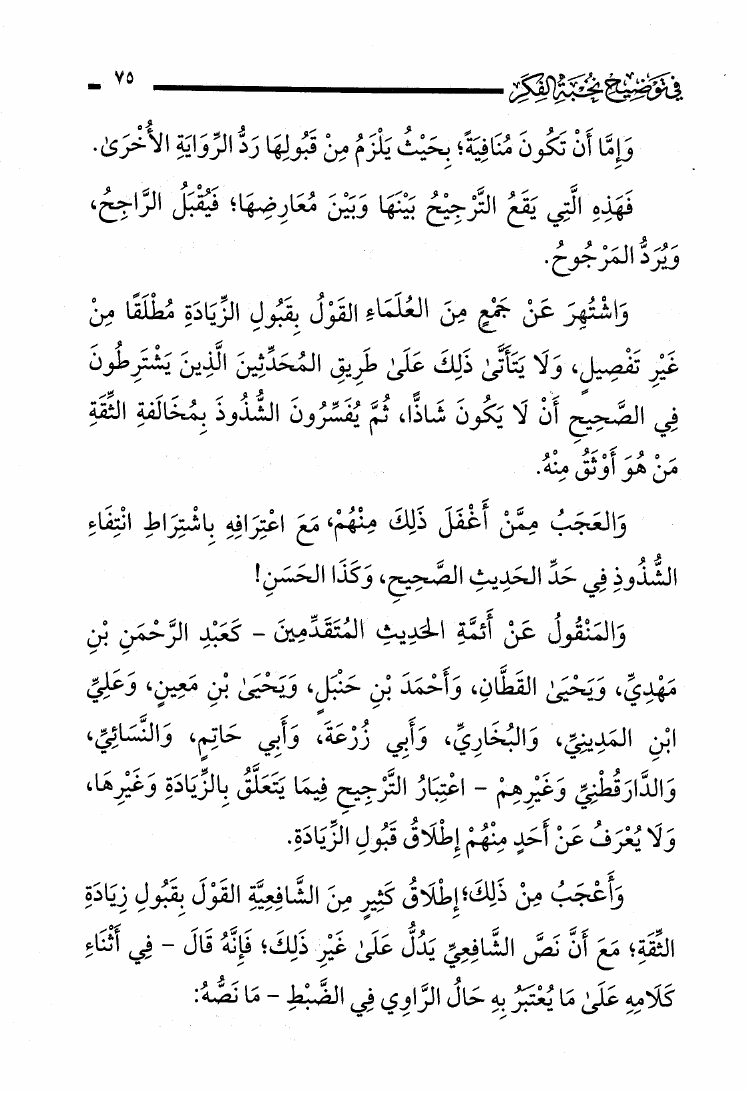 في توضيح نخبة الفكر ٧٥
وَإِمَّا أَنْ تَكُونَ مُنَافِيَةً؛ بِحَيْثُ يَلْزَمُ مِنْ قَبُولِهَا رَدُّ الرِّوَايَةِ الأُخْرَىٰ.
فَهَذِهِ الَّتِي يَقَعُ التَّرْجِيْحُ بَيْنَهَا وَبَيْنَ مُعَارِضِهَا؛ فَيُقْبَلُ الرَّاجِحُ،
وَيُرَدُّ المَرْجُوحُ.
وَاشْتُهِرَ عَنْ جَمْعٍ مِنَ العُلَمَاءِ القَوْلُ بِقَبُولِ الزِّيَادَةِ مُطْلَقًا مِنْ
غَيْرِ تَفْصِيلٍ، وَلَا يَتَأَتَّىٰ ذَلِكَ عَلَىٰ طَرِيقِ المُحَدِّثِينَ الَّذِينَ يَشْتَرِطُونَ
فِي الصَّحِيحِ أَنْ لَا يَكُونَ شَاذًّا، ثُمَّ يُفَسِّرُونَ الشُّذُوذَ بِمُخَالَفَةِ الثِّقَةِ
مَنْ هُوَ أَوْثَقُ مِنْهُ.
وَالعَجَبُ مِمَّنْ أَغْفَلَ ذَلِكَ مِنْهُمْ، مَعَ اعْتِرَافِهِ بِاشْتِرَاطِ انْتِفَاءِ
الشُّذُوذِ فِي حَدِّ الحَدِيثِ الصَّحِيحِ، وَكَذَا الحَسَنِ!
وَالمَنْقُولُ عَنْ أَئمَّةِ الحَدِيثِ المُتَقَدِّمِينَ - كَعَبْدِ الرَّحْمَنِ بْنِ
مَهْدِيٍّ، وَيَحْيَىٰ القَطَّانِ، وَأَحْمَدَ بْنِ حَنْبَلٍ، وَيَحْيَىٰ بْنِ مَعِينٍ، وَعَلِيِّ
ابْنِ المَدِينِيِّ، وَالبُخَارِيِّ، وَأَبِي زُرْعَةَ، وَأَبِي حَاتِمٍ، وَالنَّسَائِيِّ،
وَالدَّارَقُطْنِيِّ وَغَيْرِهِمْ - اعْتِبَارُ التَّرْجِيحِ فِيمَا يَتَعَلَّقُ بِالزِّيَادَةِ وَغَيْرِهَا،
وَلَا يُعْرَفُ عَنْ أَحَدٍ مِنْهُمْ إِطْلَاقُ قَبُولِ الزِّيَادَةِ.
وَأَعْجَبُ مِنْ ذَلِكَ؛ إِطْلَاقُ كَثِيرٍ مِنَ الشَّافِعِيَّةِ القَوْلَ بِقَبُولِ زِيَادَةِ
الثِّقَةِ؛ مَعَ أَنَّ نَصَّ الشَّافِعِيِّ يَدُلُّ عَلَىٰ غَيْرِ ذَلِكَ؛ فَإِنَّهُ قَالَ - فِي أَثْنَاءِ
كَلَامِهِ عَلَىٰ مَا يُعْتَبَرُ بِهِ حَالُ الرَّاوِي فِي الضَّبْطِ - مَا نَصُّهُ: